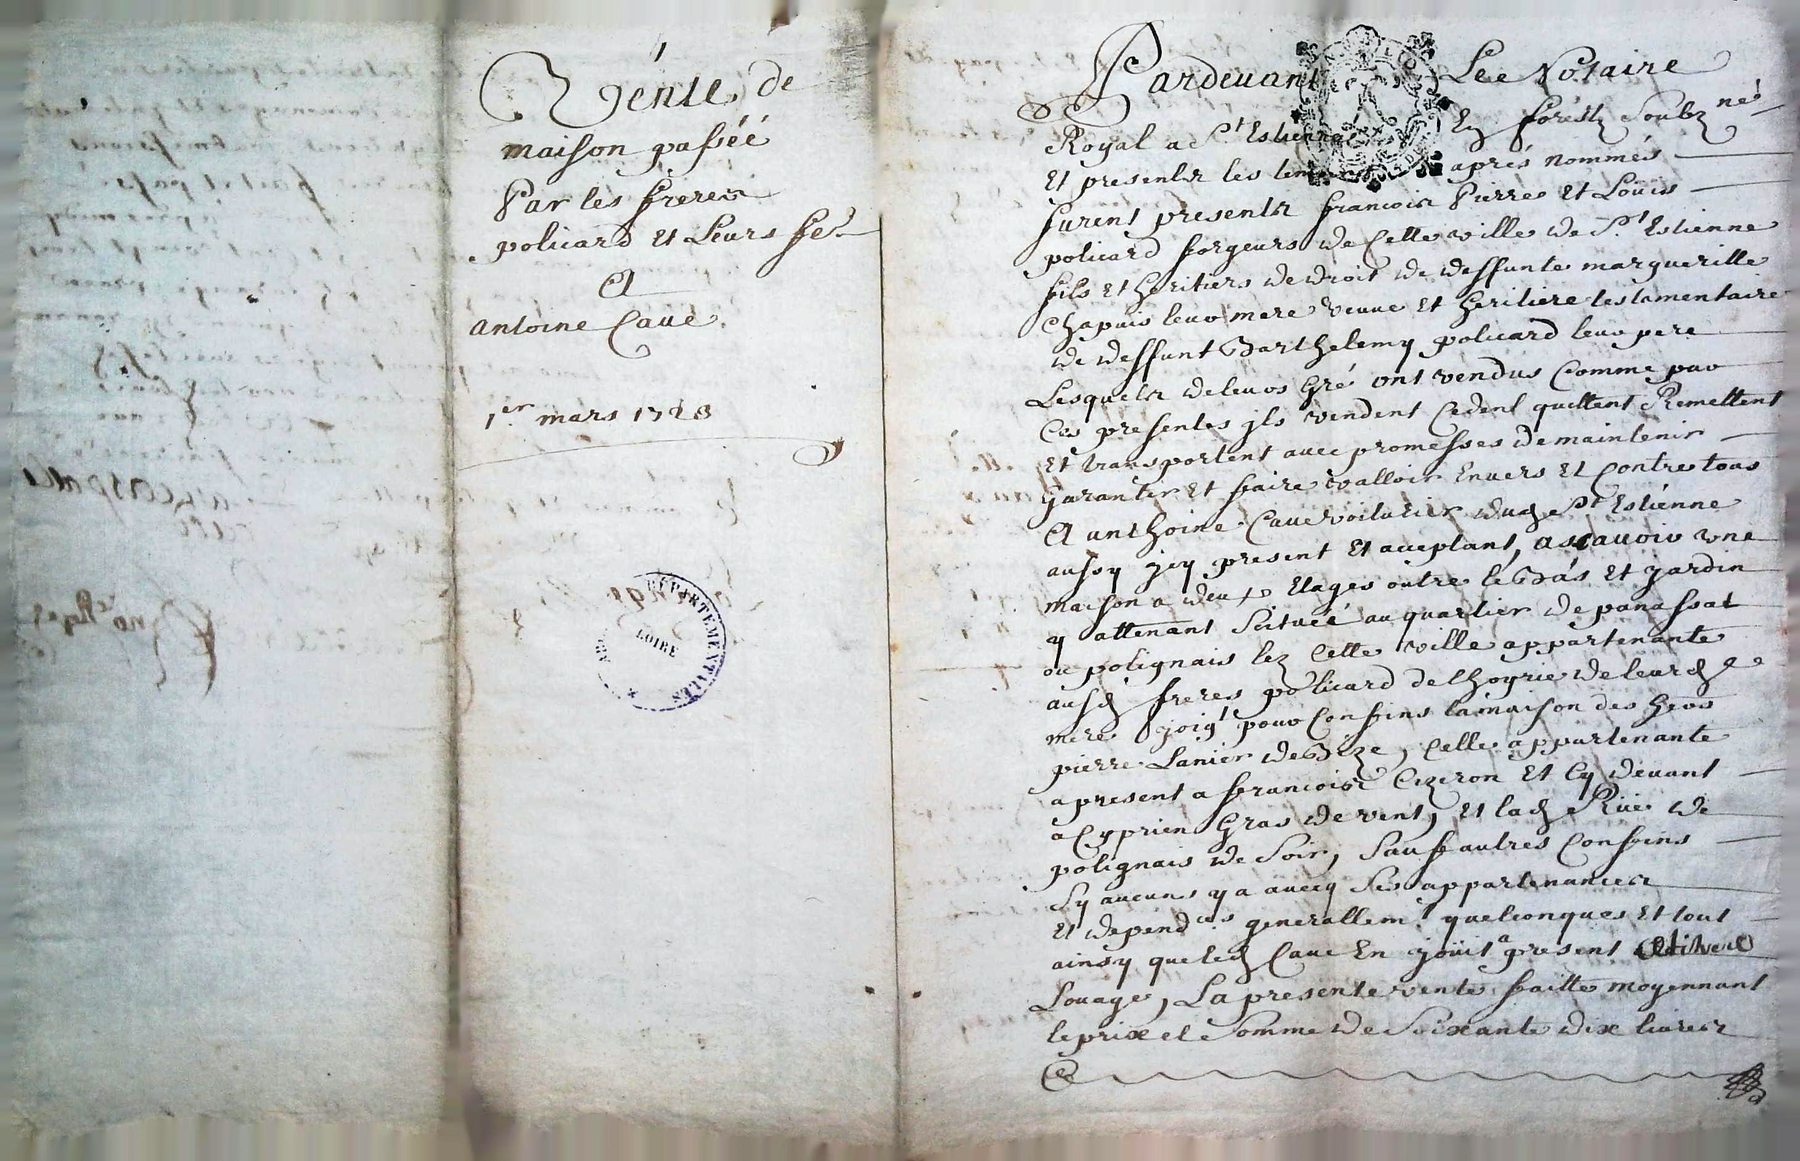 Vente de
maison passéé
Par les freres
policard et Leurs fe
A
antoine Caue.
1er mars 1728
DÉPARTEMENTALES
LOIRE
Pardeuant Lee Notaire
Royal a St Estienne En forest Soubzne
Et presents les temoins aprés nommés
furent presents francois Pierre et Louis
policard forgeurs de Cette ville de St Estienne
fils et heritiers de droit de deffunte margueritte
Chapuis leur mere veuue et heritiere testamentaire
de deffunt Barthelemy policard leur pere
Lesquels de leurs Gré ont vendus Comme par
Ces presentes jls vendent Cedent quittent Remettent
Et transportent auec promesses de maintenir
garantir et faire valloir Enuers et Contre tous
A anthoine Caue voiturier dud St Estienne
aussy jcy present et acceptant, ascauoir une
maison a deux Etages outre le Bas et jardin
y attenant Scituéé au quartier de panassat
ou polignais lez Cette ville appartenante
ausd freres policard de lhoyrie de leurd
mere joigt pour Confins la maison des hers
pierre Lanier de Bize, Celle appartenante
a present a francois Cizeron et Cy deuant
a Cyprien Gras de vent, et lad Rüe de
polignais de Soir, Sauf autres Confins
Sy aucuns y a auecq Ses appartenances
et dependces generallemt quelconques et tout
ainsy que led Caue En joüit a present
Louage, La presente vente faitte moyennant
le prix et Somme de Soixante dix liures